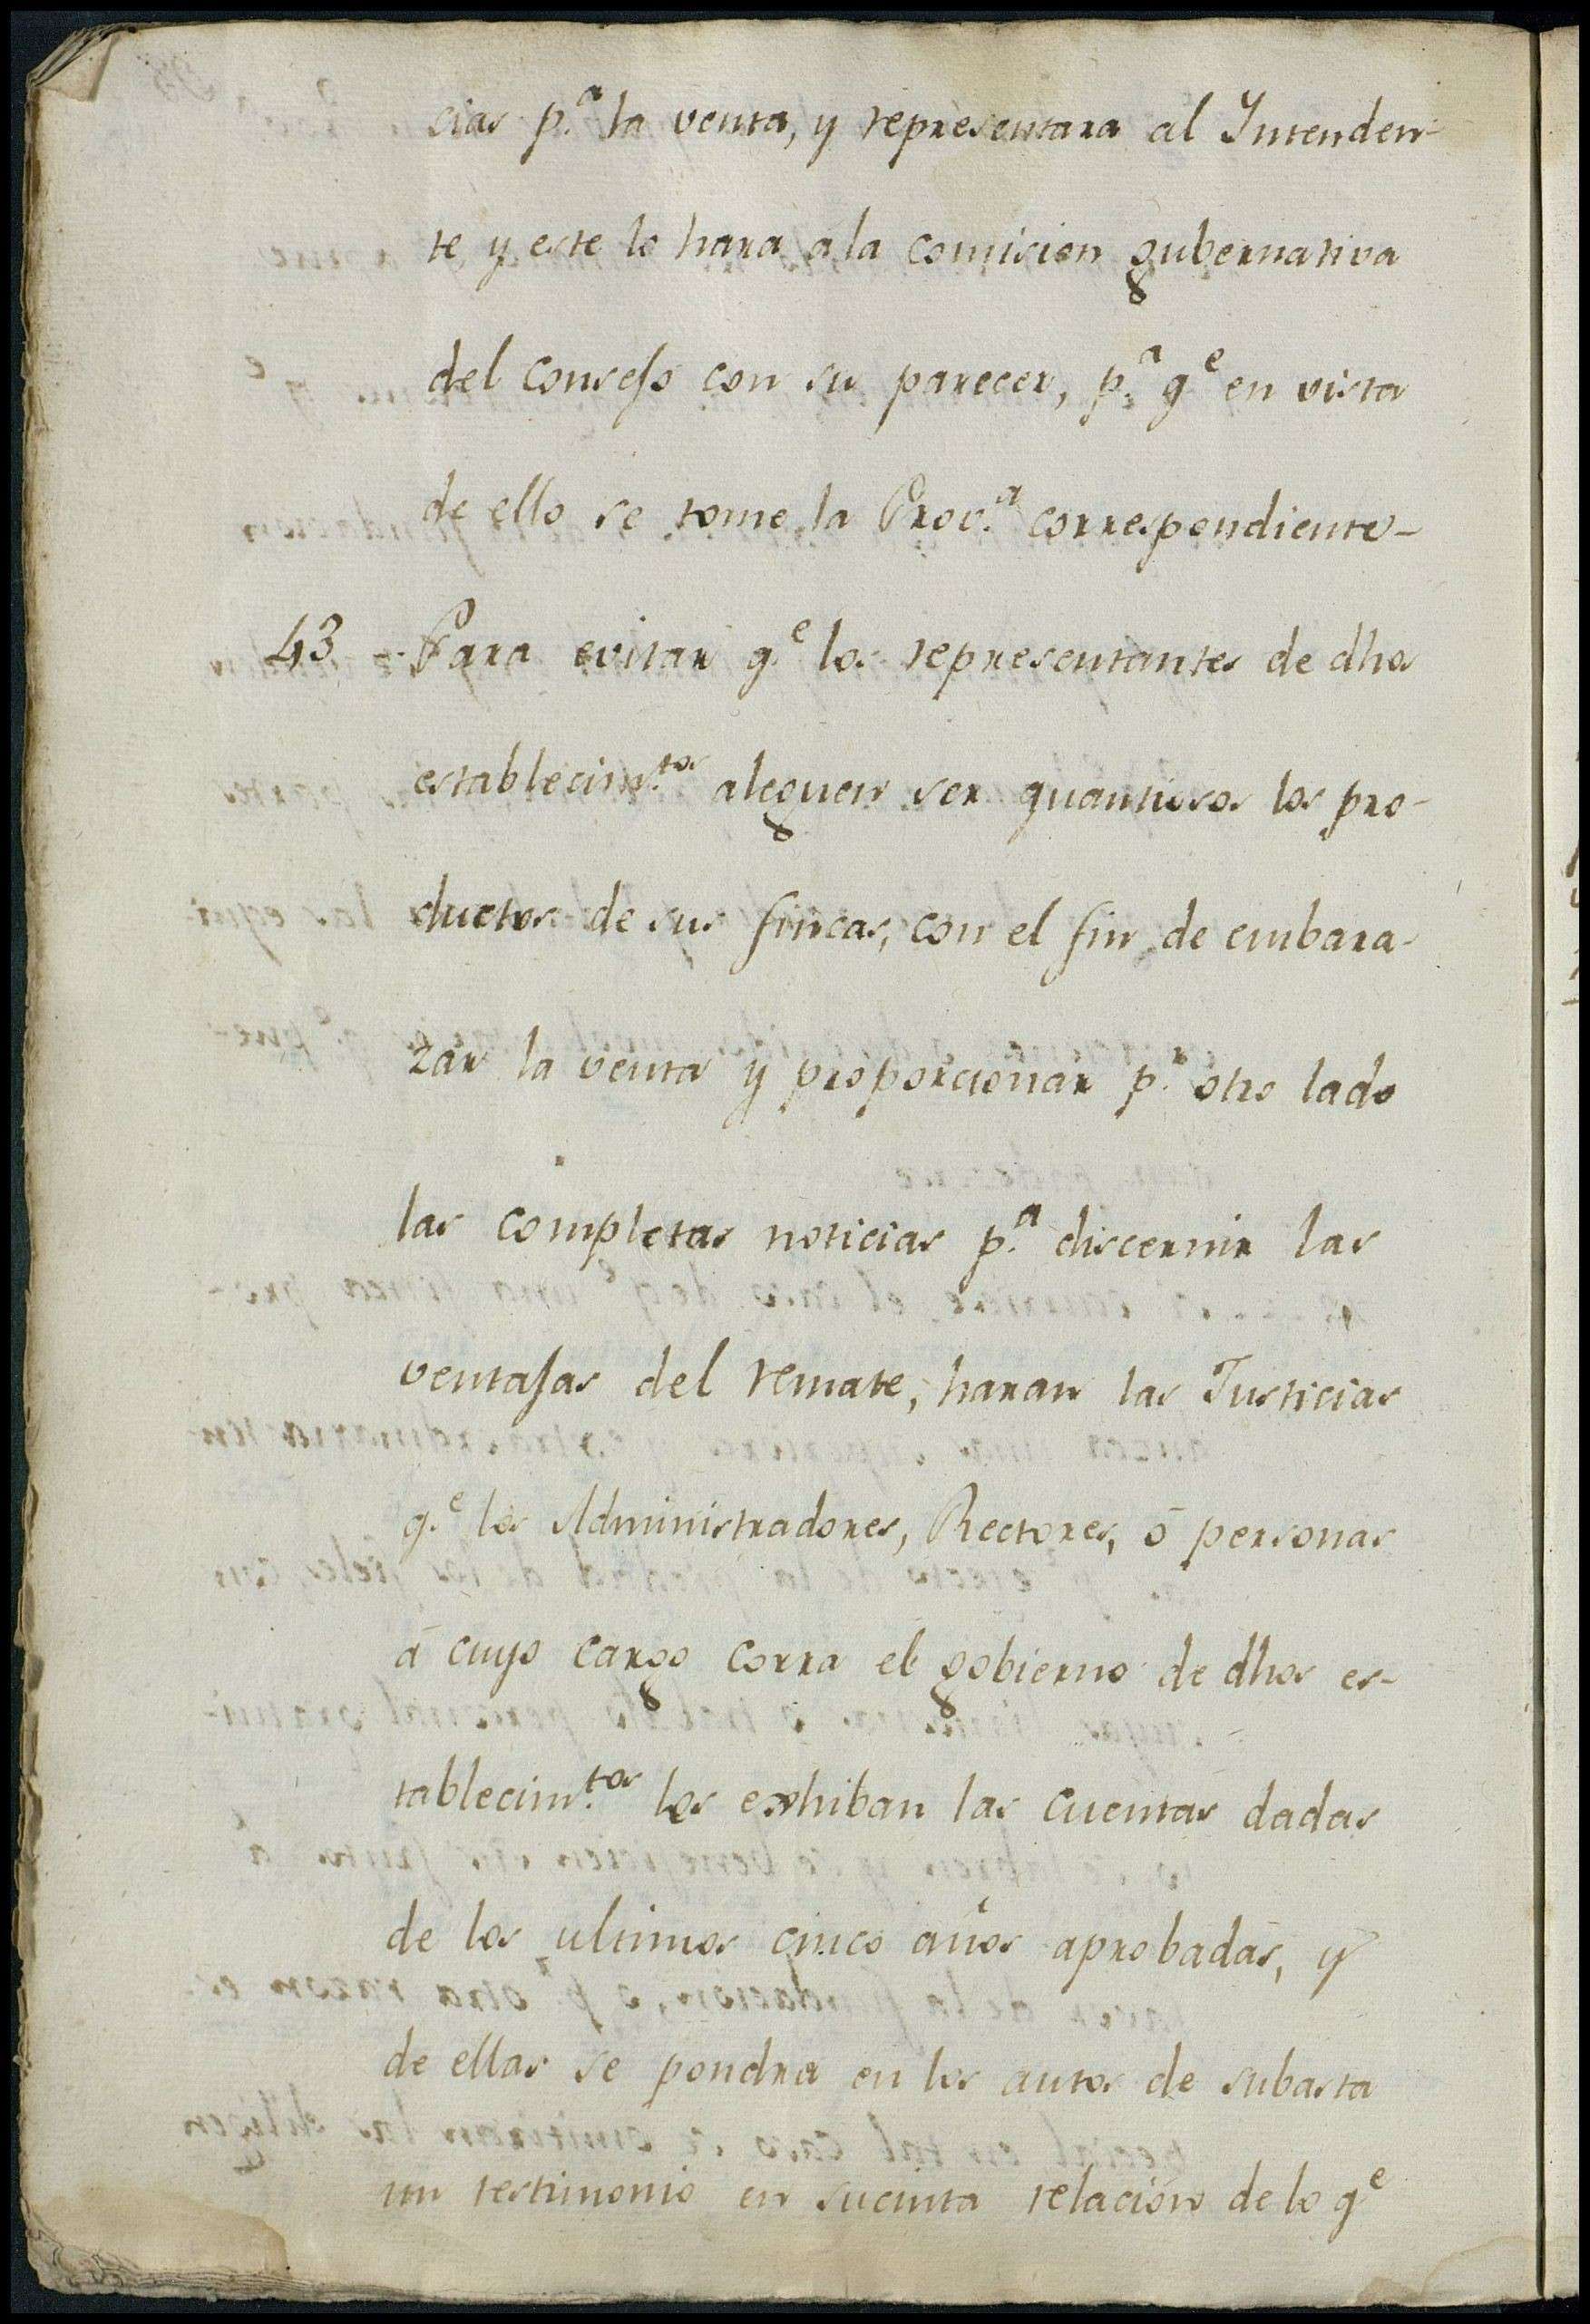 cias p.ª la venta, y representara al Intenden-
te y este lo hara á la comision gubernativa
del consejo con su parecer, p.ª q.e en vista
de ello se tome la Prov.ª correspondiente-
43 - Para evitar q.e los representantes de dhos
establecim.tos aleguen ser quantiosos los pro-
ductos de sus fincas, con el fin de embara-
zar la venta y proporcionar p.r otro lado
las completas noticias p.ª discernir las
ventajas del remate, haran las Justicias
q.e los Administradores, Rectores, ó personas
á cuyo cargo corra el gobierno de dhos es-
tablecim.tos los exhiban las cuentas dadas
de los ultimos cinco años aprobadas, y
de ellas se pondra en los autos de subasta
un testimonio en sucinta relacion de lo q.e